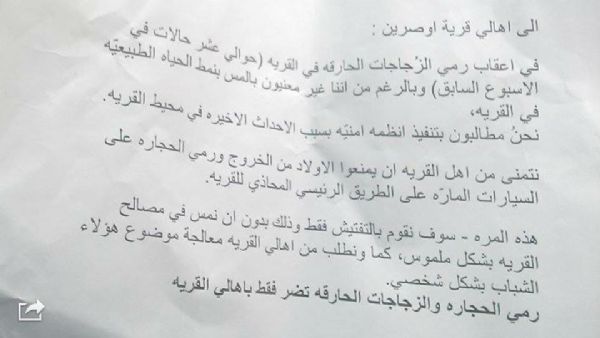 الى اهالي قرية اوصرين :
في اعقاب رمي الزّجاجات الحارقه في القريه (حوالي عشر حالات في
الاسبوع السابق) وبالرغم من اننا غير معنيون بالمس بنمط الحياه الطبيعيّه
في القريه،
نحنُ مطالبون بتنفيذ انظمه امنيّه بسبب الاحداث الاخيره في محيط القريه.
نتمنى من اهل القريه ان يمنعوا الاولاد من الخروج ورمي الحجاره على
السيارات المارّه على الطريق الرئيسي المحاذي للقريه.
هذه المره - سوف نقوم بالتفتيش فقط وذلك بدون ان نمس في مصالح
القريه بشكل ملموس، كما ونطلب من اهالي القريه معالجة موضوع هؤلاء
الشباب بشكل شخصي.
رمي الحجاره والزجاجات الحارقه تضر فقط باهالي القريه